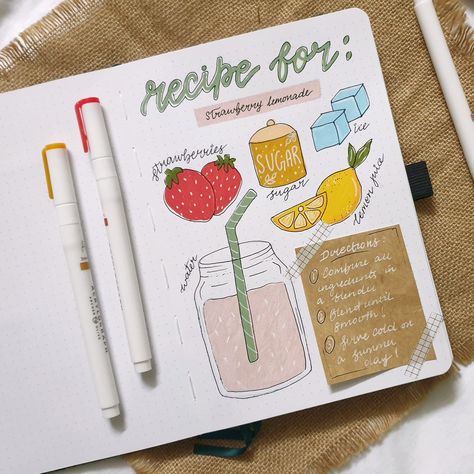 recipe for:
strawberry lemonade
strawberries
SUGAR
sugar
ice
lemon juice
water
Directions:
① Combine all
ingredients in
a blender
② Blend until
smooth!
③ Serve cold on
a summer
day!